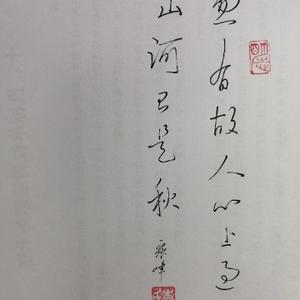 忽有故人心上过
山河已是秋